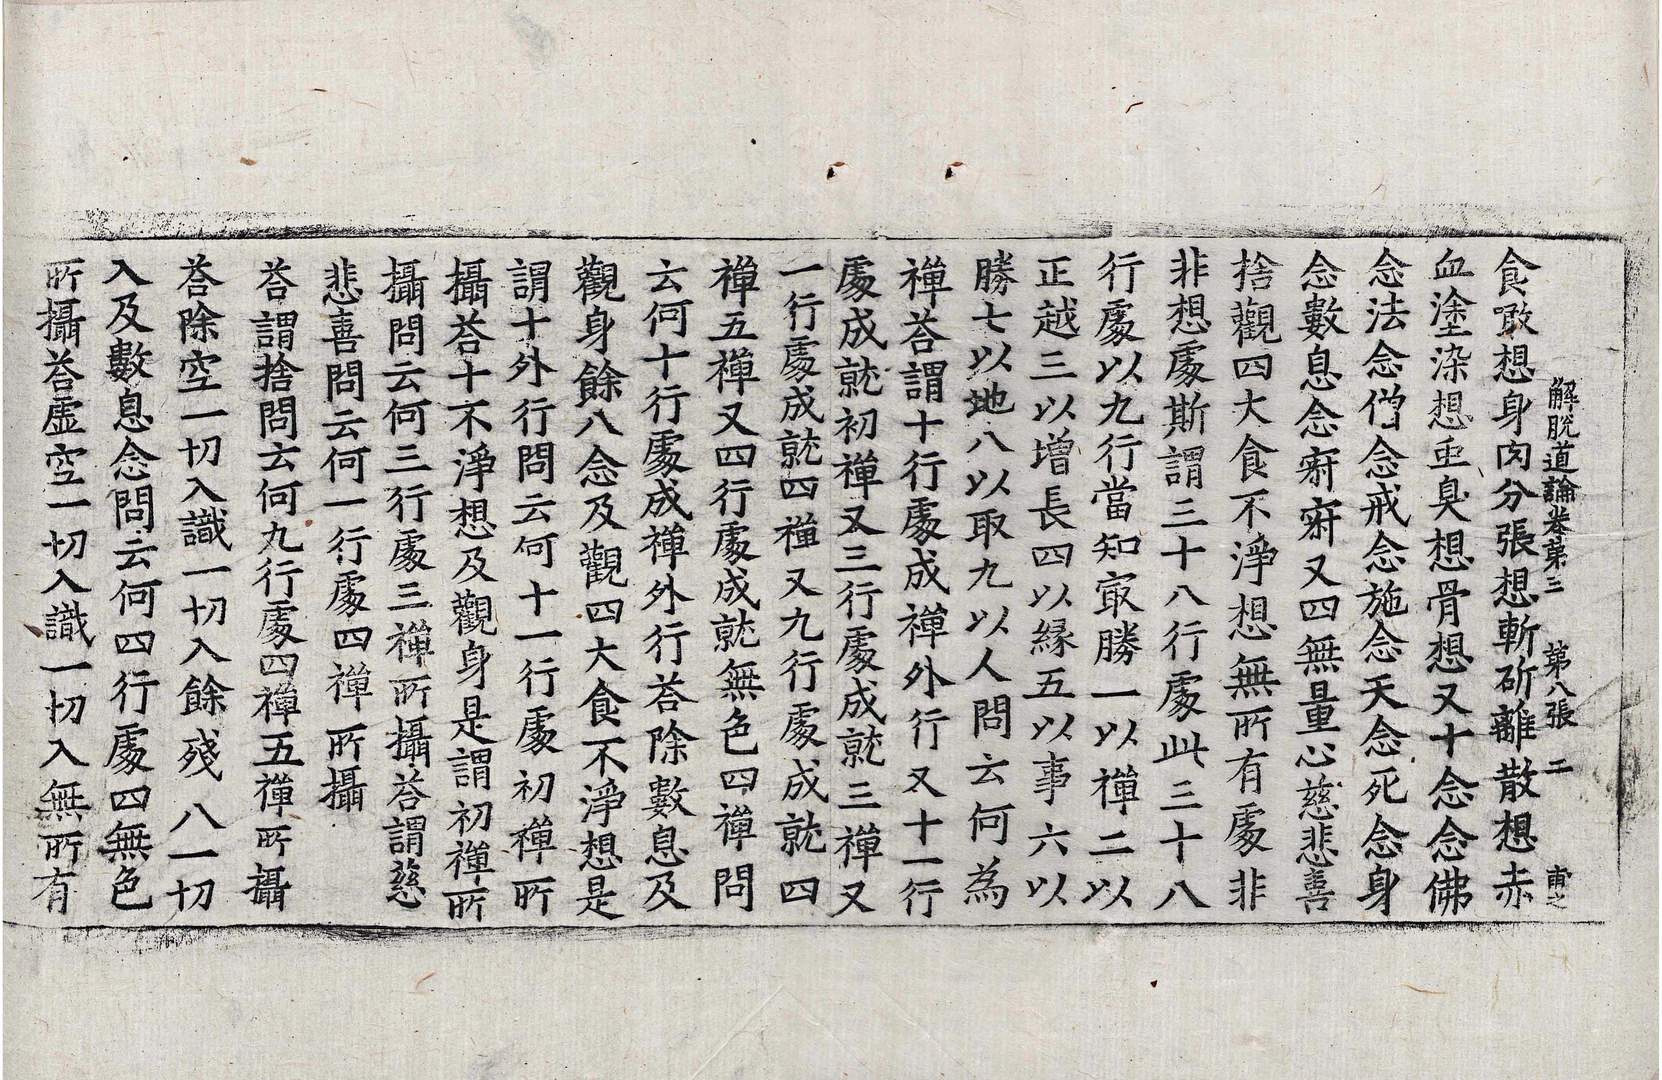 解脫道論卷第三 第八張 二 甫之
食噉想身肉分張想斬斫離散想赤
血塗染想虫臭想骨想又十念念佛
念法念僧念戒念施念天念死念身
念數息念寂寂又四無量心慈悲喜
捨觀四大食不淨想無所有處非
非想處斯謂三十八行處此三十八
行處以九行當知㝡勝一以禪二以
正越三以增長四以緣五以事六以
勝七以地八以取九以人問云何為
禪荅謂十行處成禪外行又十一行
處成就初禪又三行處成就三禪又
一行處成就四禪又九行處成就四
禪五禪又四行處成就無色四禪問
云何十行處成禪外行荅除數息及
觀身餘八念及觀四大食不淨想是
謂十外行問云何十一行處初禪所
攝荅十不淨想及觀身是謂初禪所
攝問云何三行處三禪所攝荅謂慈
悲喜問云何一行處四禪所攝
荅謂捨問云何九行處四禪五禪所攝
荅除空一切入識一切入餘殘八一切
入及數息念問云何四行處四無色
所攝荅虛空一切入識一切入無所有